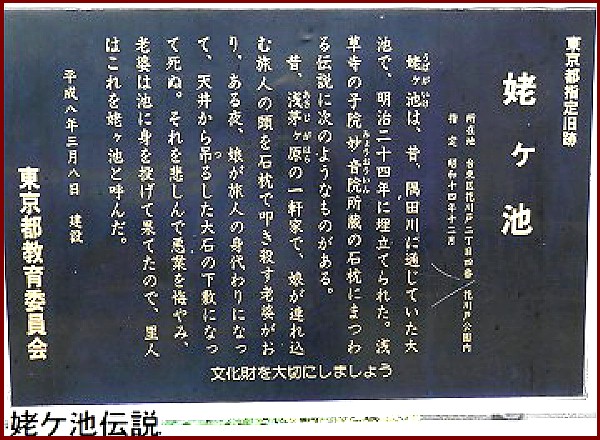 東京都指定旧跡
姥ヶ池
所在地 台東区花川戸二丁目四番 花川戸公園内
指定 昭和十四年十二月
姥ヶ池は、昔、隅田川に通じていた大
池で、明治二十四年に埋立てられた。浅
草寺の子院妙音院所蔵の石枕にまつわ
る伝説に次のようなものがある。
昔、浅茅ヶ原の一軒家で、娘が連れ込
む旅人の頭を石枕で叩き殺す老婆がお
り、ある夜、娘が旅人の身代わりになっ
て、天井から吊るした大石の下敷になっ
て死ぬ。それを悲しんで悪業を悔やみ、
老婆は池に身を投げて果てたので、里人
はこれを姥ヶ池と呼んだ。
平成八年三月八日 建設
東京都教育委員会
文化財を大切にしましょう
姥ケ池伝説